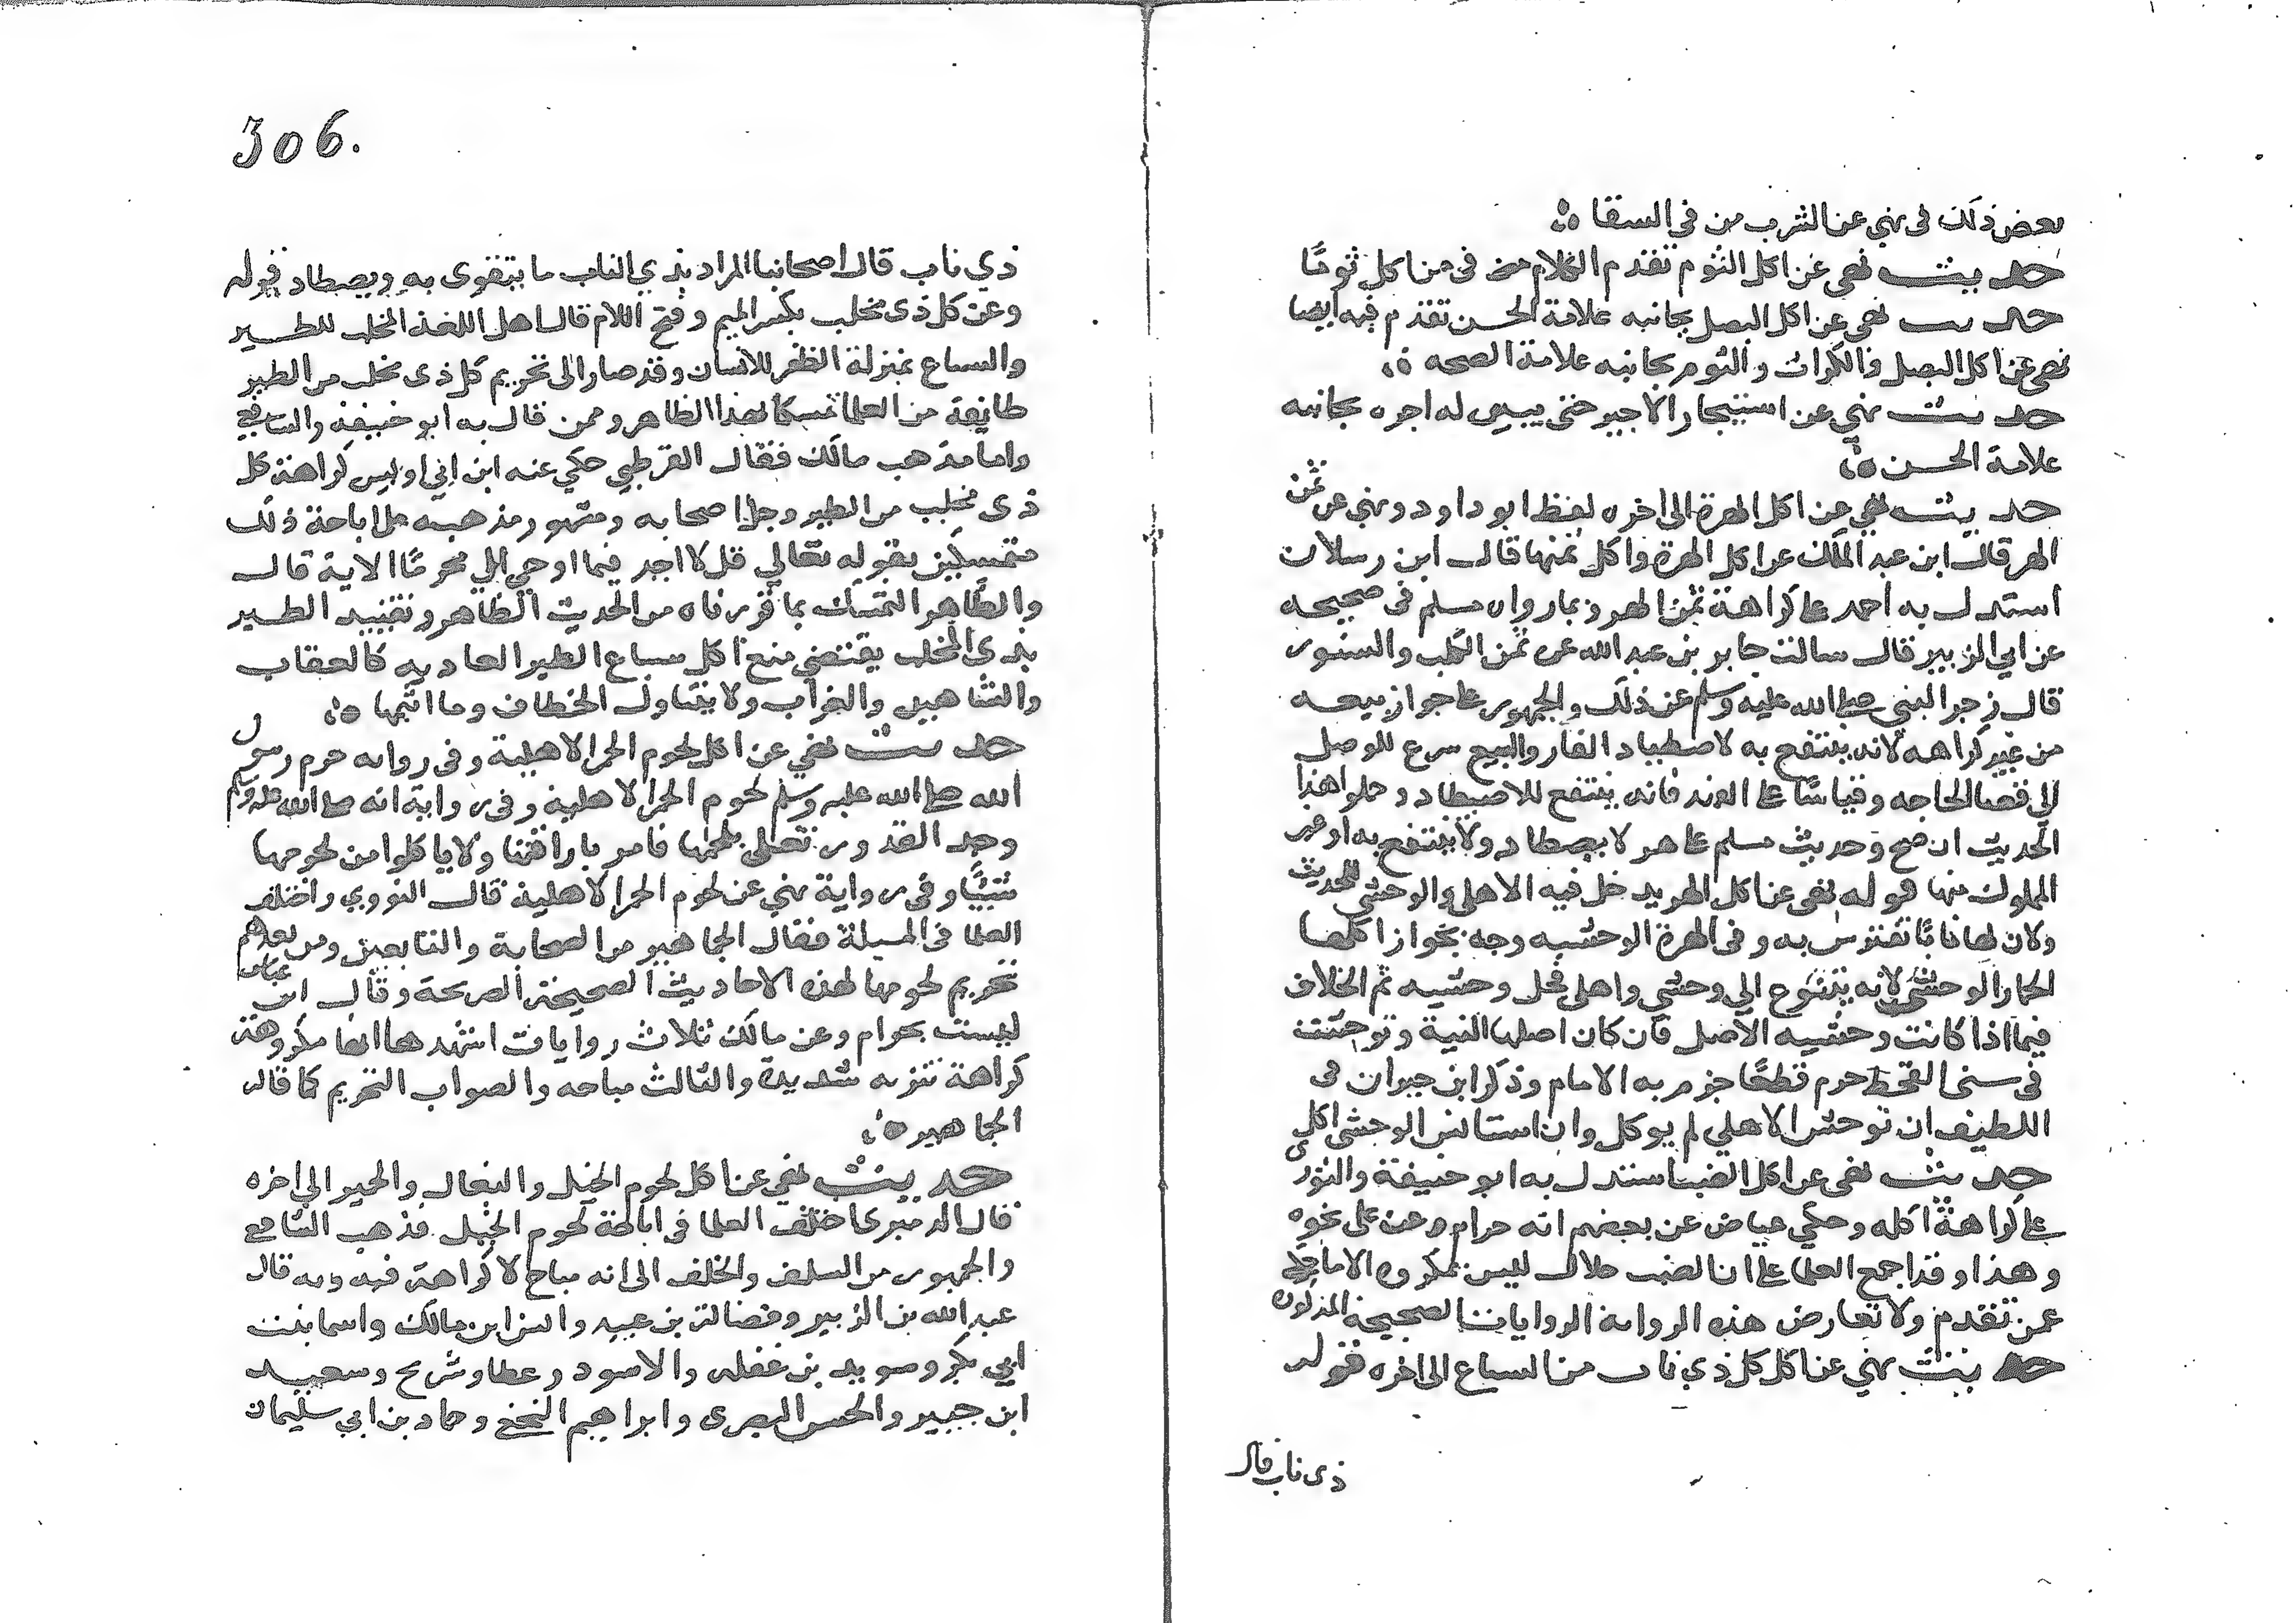 بعض ذلك في نهي عن الشرب من في السقا
حديث نهى عن اكل الثوم تقدم الكلام في من اكل ثوما
حديث نهى عن اكل البصل بجانبه علامة الحسن تقدم فيه ايضا
نهى عن اكل البصل والكراث والثوم بجانبه علامة الصحه
حديث نهي عن استيجار الاجير حتى يبين له اجره بجانبه
علامة الحسن
حديث نهي عن اكل الهرة الى اخره لفظ ابو داود ونهي عن ثمن
الهر قال ابن عبد الملك عن اكل الهرة واكل ثمنها قال ابن رسلان
استدل به احمد على كراهة ثمن الهر وبما رواه مسلم في صحيحه
عن ابي الزبير قال سالت جابر بن عبد الله عن ثمن الكلب والسنور
قال زجر النبي صلى الله عليه وسلم عن ذلك والجمهور على جواز بيعه
من غير كراهه لانه ينتفع به لاصطياد الفار والبيع شرع للوصل
الى قضا الحاجه وقياسا على الفهد فانه ينتفع للاصطياد وحملوا هذا
الحديث ان صح وحديث مسلم على هر لا يصطاد ولا ينتفع به او غير
المملوك منها قوله نهى عن اكل الهر يدخل فيه الاهلي والوحشي للحديث
ولان لها نابا تفترس به وفي الهرة الوحشيه وجه بجواز اكلها
الحمار الوحشي لانه يتنوع الي وحشي واهلي فحل وحشيه ثم الخلاف
فيما اذا كانت وحشيه الاصل فان كان اصلها انسية وتوحشت
في سنى القحط حرم قطعا جزم به الامام وذكر ابن جبران في
اللطيف ان توحش الاهلي لم يوكل وان استانس الوحشي اكل
حديث نهى عن اكل الضب استدل به ابو حنيفة والثوري
على كراهة اكله وحكي عياض عن بعضهم انه حرام وعن علي نحوه
وهذا وقد اجمع العلما على ان الضب حلال ليس بمكروه الا ما حكى
عمن تقدم ولا تعارض هذه الروايه الروايات الصحيحة المذكوره
حديث نهي عن اكل كل ذي ناب من السباع الى اخره قوله
ذي ناب قال
306.
ذي ناب قال اصحابنا المراد بذي الناب ما يتقوى به ويصطاد قوله
وعن كل ذي مخلب بكسر الميم وفتح اللام قال اهل اللغة المخلب للطير
والسباع بمنزلة الظفر للانسان وقد صار الى تحريم كل ذي مخلب من الطير
طائفة من العلما تمسكا بهذا الظاهر وممن قال به ابو حنيفة والشافعي
واما مذهب مالك فقال القرطبي حكي عنه ابن ابي اويس كراهة كل
ذي مخلب من الطير وجل اصحابه ومشهور مذهبه على اباحة ذلك
متمسكين بقوله تعالي قل لا اجد فيما اوحي الي محرما الاية قال
والظاهر التمسك بما قررناه من الحديث الظاهر وتقييد الطير
بذي المخلب يقتضي منع اكل سباع الطير العاديه كالعقاب
والشاهين والغراب ولا يتناول الخطاف وما اشبهها
حديث نهي عن اكل لحوم الحمر الاهلية وفي روايه حرم رسول
الله صلى الله عليه وسلم لحوم الحمر الاهلية وفي رواية انه صلى الله عليه وسلم
وجد القدور تغلي بلحمها فامر باراقتها ولا ياكلوا من لحومها
شيئا وفي رواية نهي عن لحوم الحمر الاهلية قال النووي واختلف
العلما في المسيلة فقال الجماهير من الصحابة والتابعين ومن بعدهم
تحريم لحومها لهذه الاحاديث الصحيحة الصريحة وقال ابن عباس
ليست بحرام وعن مالك ثلاث روايات اشهدها انها مكروهة
كراهة تنزيه شديدة والثالث مباحه والصواب التحريم كما قاله
الجماهير
حديث نهي عن اكل لحوم الخيل والبغال والحمير الي اخره
قال الدميري اختلف العلما في اباحة لحوم الخيل فذهب الشافعي
والجمهور من السلف والخلف الى انه مباح لا كراهة فيه وبه قال
عبد الله بن الزبير وفضالة بن عبيد وانس ابن مالك واسما بنت
ابي بكر وسويد بن غفله والاسود وعطا وشريح وسعيد
ابن جبير والحسن البصري وابراهيم النخعي وحماد بن ابي سليمان